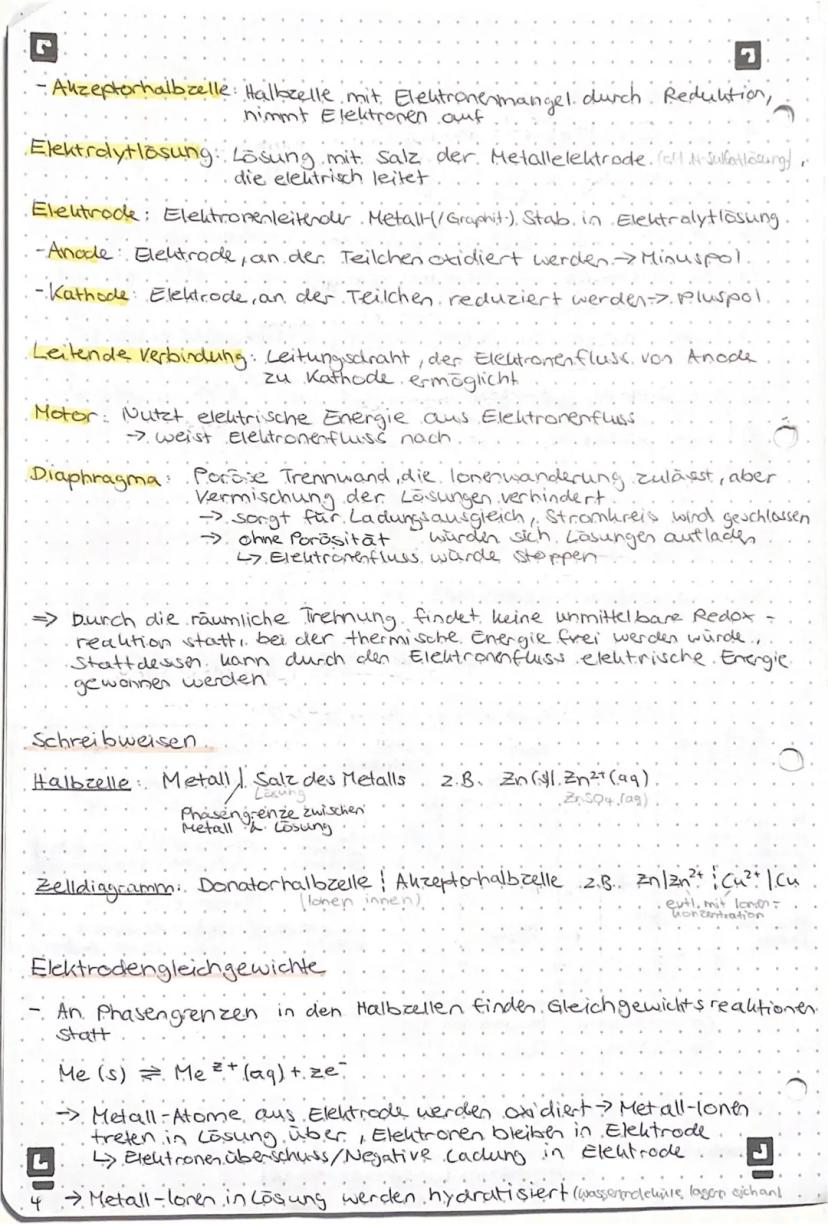 - Akzeptorhalbzelle: Halbzelle mit Elektronenmangel durch Reduktion,
nimmt Elektronen auf
Elektrolytlösung: Lösung mit Salz der Metallelektrode (oft
die elektrisch leitet
Elektrode: Elektronenleitender Metall-(/Graphit-) Stab in Elektrolytlösung
- Anode: Elektrode, an der Teilchen oxidiert werden → Minuspol
- Kathode: Elektrode, an der Teilchen reduziert werden → Pluspol
Leitende Verbindung: Leitungsdraht, der Elektronenfluss von Anode
zu Kathode ermöglicht
Motor: Nutzt elektrische Energie aus Elektronenfluss
→ weist Elektronenfluss nach
Diaphragma: Poröse Trennwand, die Ionenwanderung zulässt, aber
Vermischung der Lösungen verhindert
→ sorgt für Ladungsausgleich, Stromkreis wird geschlossen
→ ohne Porösität würden sich Lösungen aufladen
↳ Elektronenfluss würde stoppen
⇒ Durch die räumliche Trennung findet keine unmittelbare Redox-
reaktion statt, bei der thermische Energie frei werden würde,
stattdessen kann durch den Elektronenfluss elektrische Energie
gewonnen werden
Schreibweisen
Halbzelle: Metall | Salz des Metalls z.B. Zn(s)|Zn²⁺(aq)
Lösung ZnSO₄(aq)
Phasengrenze zwischen
Metall & Lösung
Zelldiagramm: Donatorhalbzelle ¦ Akzeptorhalbzelle z.B. Zn|Zn²⁺ ¦ Cu²⁺|Cu
(Ionen innen) evtl. mit Ionen-
konzentration
Elektrodengleichgewichte
- An Phasengrenzen in den Halbzellen finden Gleichgewichtsreaktionen
statt
Me (s) ⇌ Me ᶻ⁺ (aq) + ze⁻
→ Metall-Atome aus Elektrode werden oxidiert → Metall-Ionen
treten in Lösung über, Elektronen bleiben in Elektrode
↳ Elektronenüberschuss/Negative Ladung in Elektrode
4 → Metall-Ionen in Lösung werden hydratisiert (Wassermoleküle lagern sich an)